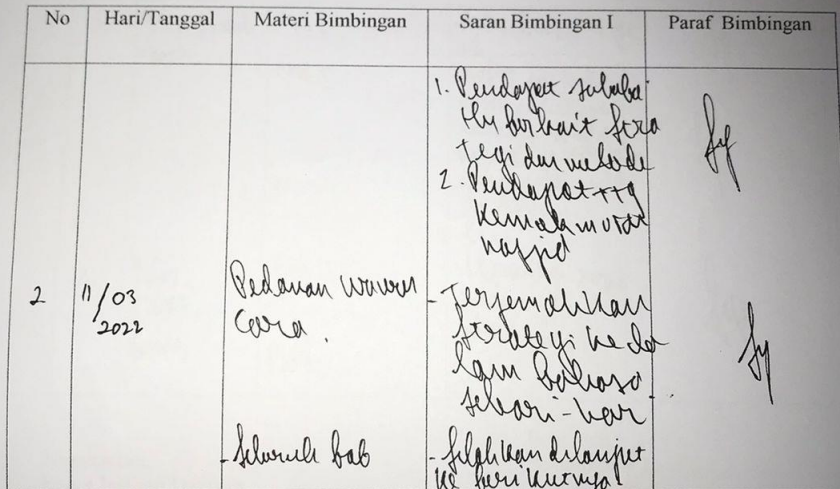 No Hari/Tanggal Materi Bimbingan Saran Bimbingan I Paraf Bimbingan
1. Pendapat
terkait stra
tegi dan metode
2. Pendapat ttg
masjid
2 11/03 2022 Pedoman wawan cara.
- Terjemahkan
strategi ke da
lam bahasa
sehari-har
- Seluruh bab
- Silahkan dilanjut
ke berikutnya